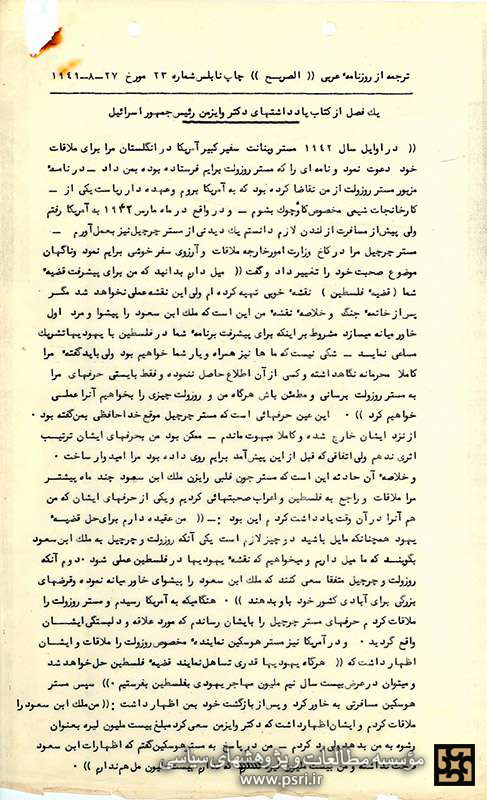 ترجمه از روزنامهٔ عربی (( الصریح )) چاپ نابلس شماره ۲۳ مورخ ۲۷-۸-۱۹۴۹
یک فصل از کتاب یادداشتهای دکتر وایزمن رئیس جمهور اسرائیل
(( در اوایل سال ۱۹۴۲ مستر وینانت سفیر کبیر آمریکا در انگلستان مرا برای ملاقات
خود دعوت نمود و نامه ای را که مستر روزولت برایم فرستاده بود به من داد - در نامهٔ
مزبور مستر روزولت از من تقاضا کرده بود که به آمریکا بروم و عهده دار ریاست یکی از -
کارخانجات شیمی مخصوص کاؤچوک بشوم - و در واقع در ماه مارس ۱۹۴۲ به آمریکا رفتم
ولی پیش از مسافرت از لندن لازم دانستم یک دیدنی از مستر چرچیل نیز بعمل آورم -
مستر چرچیل مرا در کاخ وزارت امور خارجه ملاقات و آرزوی سفر خوشی برایم نمود و ناگهان
موضوع صحبت خود را تغییر داد و گفت (( میل دارم بدانید که من برای پیشرفت قضیهٔ
شما ( قضیهٔ فلسطین ) نقشهٔ خوبی تهیه کرده ام ولی این نقشه عملی نخواهد شد مگر
پس از خاتمهٔ جنگ و خلاصهٔ نقشهٔ من این است که ملک ابن سعود را پیشوا و مرد اول
خاور میانه میسازد مشروط بر اینکه برای پیشرفت برنامهٔ شما در فلسطین با یهودیها تشریک
مساعی نماید - شکی نیست که ما ها نیز همراه و یار شما خواهیم بود ولی باید گفتهٔ مرا
کاملا محرمانه نگاهداشته و کسی از آن اطلاع حاصل ننموده و فقط بایستی حرفهای مرا
به مستر روزولت برسانی و مطمئن باش هرگاه من و روزولت چیزی را بخواهیم آنرا عملی
خواهیم کرد )) ۰ این عین حرفهائی است که مستر چرچیل موقع خدا حافظی بمن گفته بود ۰
از نزد ایشان خارج شده و کاملا مبهوت ماندم - ممکن بود من بحرفهای ایشان ترتیب
اثری ندهم ولی اتفاقی که قبل از این پیش آمد برایم روی داده بود مرا امیدوار ساخت ۰
و خلاصهٔ آن حادثه این است که مستر جون فلبی رایزن ملک ابن سعود چند ماه پیشتر
مرا ملاقات و راجع به فلسطین و اعراب صحبتهائی کردیم و یکی از حرفهای ایشان که من
هم آنرا در آن وقت یادداشت کردم این بود :- (( من عقیده دارم برای حل قضیهٔ
یهود همچنانکه مایل باشید دو چیز لازم است یکی آنکه روزولت و چرچیل به ملک ابن سعود
بگویند که ما میل داریم و میخواهیم که نقشهٔ یهودیها در فلسطین عملی شود ۰ دوم آنکه
روزولت و چرچیل متفقا سعی کنند که ملک ابن سعود را پیشوای خاور میانه نموده و قرضهای
بزرگی برای آبادی کشور خود باو بدهند )) ۰ هنگامیکه به آمریکا رسیدم و مستر روزولت را
ملاقات کردم حرفهای مستر چرچیل را بایشان رساندم که مورد علاقه و دلبستگی ایشان
واقع گردید ۰ و در آمریکا نیز مستر هوسکین نمایندهٔ مخصوص روزولت را ملاقات و ایشان
اظهار داشت که (( هرگاه یهودیها قدری تساهل نمایند قضیهٔ فلسطین حل خواهد شد
و میتوان در عرض بیست سال نیم ملیون مهاجر یهودی بفلسطین بفرستیم ۰)) سپس مستر
هوسکین مسافرتی به خاور کرد و پس از بازگشت خود بمن اظهار داشت :(( من ملک ابن سعود را
ملاقات کردم و ایشان اظهار داشت که دکتر وایزمن سعی کرد مبلغ بیست ملیون لیره بعنوان
رشوه به من بدهد ولی رد کردم - من در پاسخ به مستر هوسکین گفتم که اظهارات ابن سعود
نداشته و من بیست ملیون
مؤسسه مطالعات و پژوهشهای سیاسی
www.psri.ir